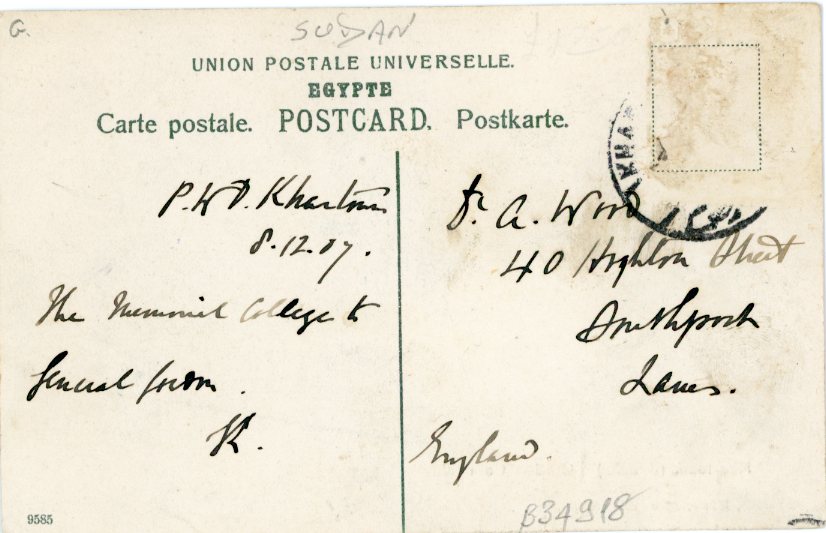 G.
SUDAN
UNION POSTALE UNIVERSELLE.
EGYPTE
Carte postale. POSTCARD. Postkarte.
P.W.D. Khartoum
8.12.07.
The Memorial College to
General Gordon.
K.
Dr. A. Wood
40 Hoghton Street
Southport
Lancs.
England.
9585
B34918